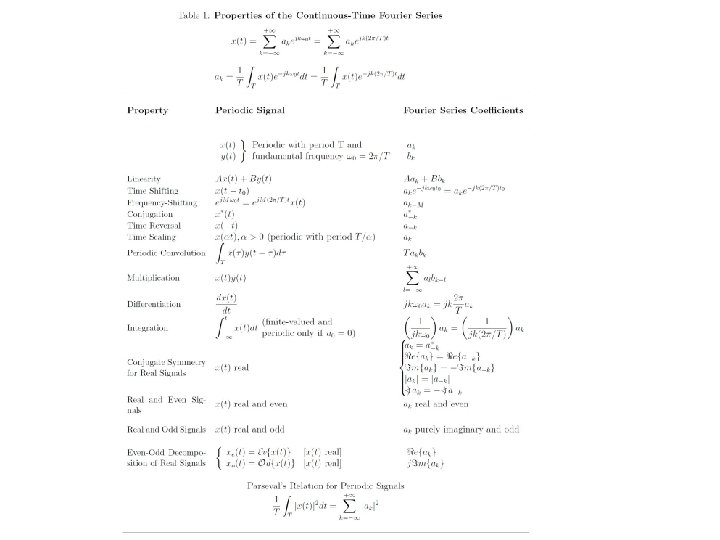 Table 1. Properties of the Continuous-Time Fourier Series
x(t) = ∑_{k=−∞}^{+∞} a_k e^{jkω_0t} = ∑_{k=−∞}^{+∞} a_k e^{jk(2π/T)t}
a_k = 1/T ∫_T x(t)e^{−jkω_0t}dt = 1/T ∫_T x(t)e^{−jk(2π/T)t}dt
Property Periodic Signal Fourier Series Coefficients
x(t) } Periodic with period T and a_k
y(t) } fundamental frequency ω_0 = 2π/T b_k
Linearity Ax(t) + By(t) Aa_k + Bb_k
Time Shifting x(t − t_0) a_k e^{−jkω_0t_0} = a_k e^{−jk(2π/T)t_0}
Frequency-Shifting e^{jMω_0t} = e^{jM(2π/T)t}x(t) a_{k−M}
Conjugation x*(t) a*_{−k}
Time Reversal x(−t) a_{−k}
Time Scaling x(αt), α > 0 (periodic with period T/α) a_k
Periodic Convolution ∫_T x(τ)y(t − τ)dτ Ta_kb_k
Multiplication x(t)y(t) ∑_{l=−∞}^{+∞} a_l b_{k−l}
Differentiation dx(t)/dt jkω_0a_k = jk 2π/T a_k
Integration ∫_{−∞}^{t} x(t)dt (finite-valued and periodic only if a_0 = 0) (1/jkω_0) a_k = (1/jk(2π/T)) a_k
Conjugate Symmetry
for Real Signals x(t) real
{ a_k = a*_{−k}
ℜe{a_k} = ℜe{a_{−k}}
ℑm{a_k} = −ℑm{a_{−k}}
|a_k| = |a_{−k}|
∢a_k = −∢a_{−k}
Real and Even Sig-
nals x(t) real and even a_k real and even
Real and Odd Signals x(t) real and odd a_k purely imaginary and odd
Even-Odd Decompo- { x_e(t) = Ev{x(t)} [x(t) real] ℜe{a_k}
sition of Real Signals { x_o(t) = Od{x(t)} [x(t) real] jℑm{a_k}
Parseval's Relation for Periodic Signals
1/T ∫_T |x(t)|²dt = ∑_{k=−∞}^{+∞} |a_k|²